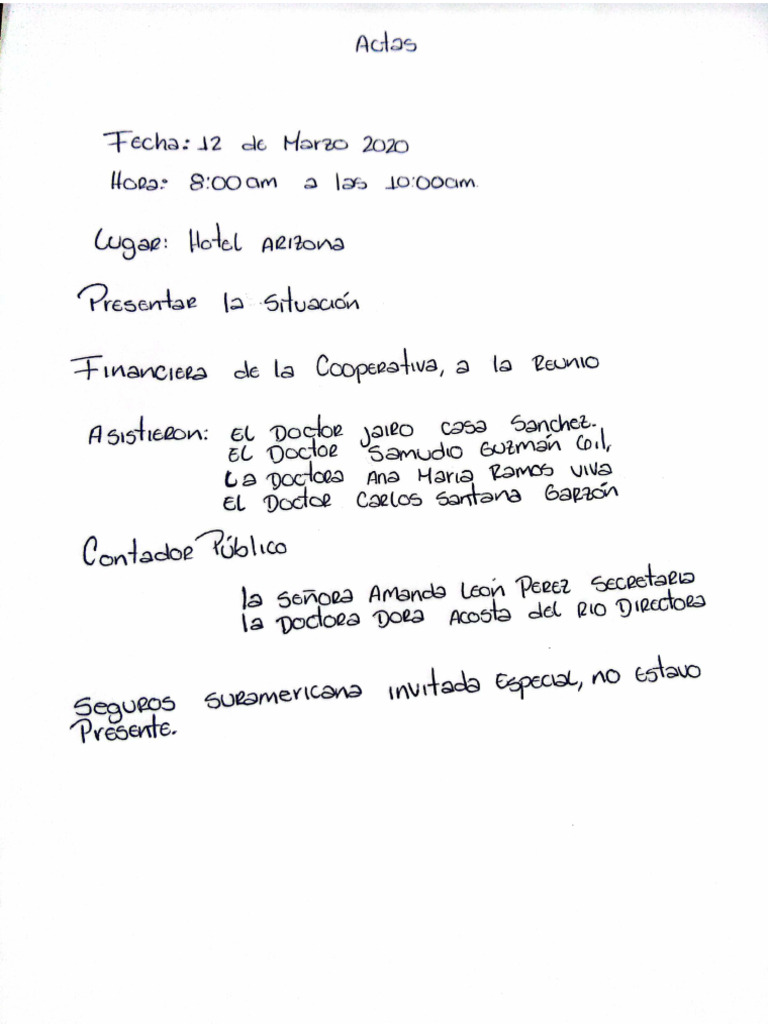 Actas
Fecha: 12 de Marzo 2020
Hora: 8:00am a las 10:00am
Lugar: Hotel ARIZONA
Presentar la situación
Financiera de la Cooperativa, a la Reunio
Asistieron: El Doctor Jairo Casa Sanchez.
El Doctor Samudio Guzmán Coil,
La Doctora Ana Maria Ramos Viva
El Doctor Carlos Santana Garzón
Contador Público
la Señora Amanda León Perez Secretaria
la Doctora Dora Acosta del Rio Directora
Seguros suramericana invitada Especial, no Estavo
Presente.